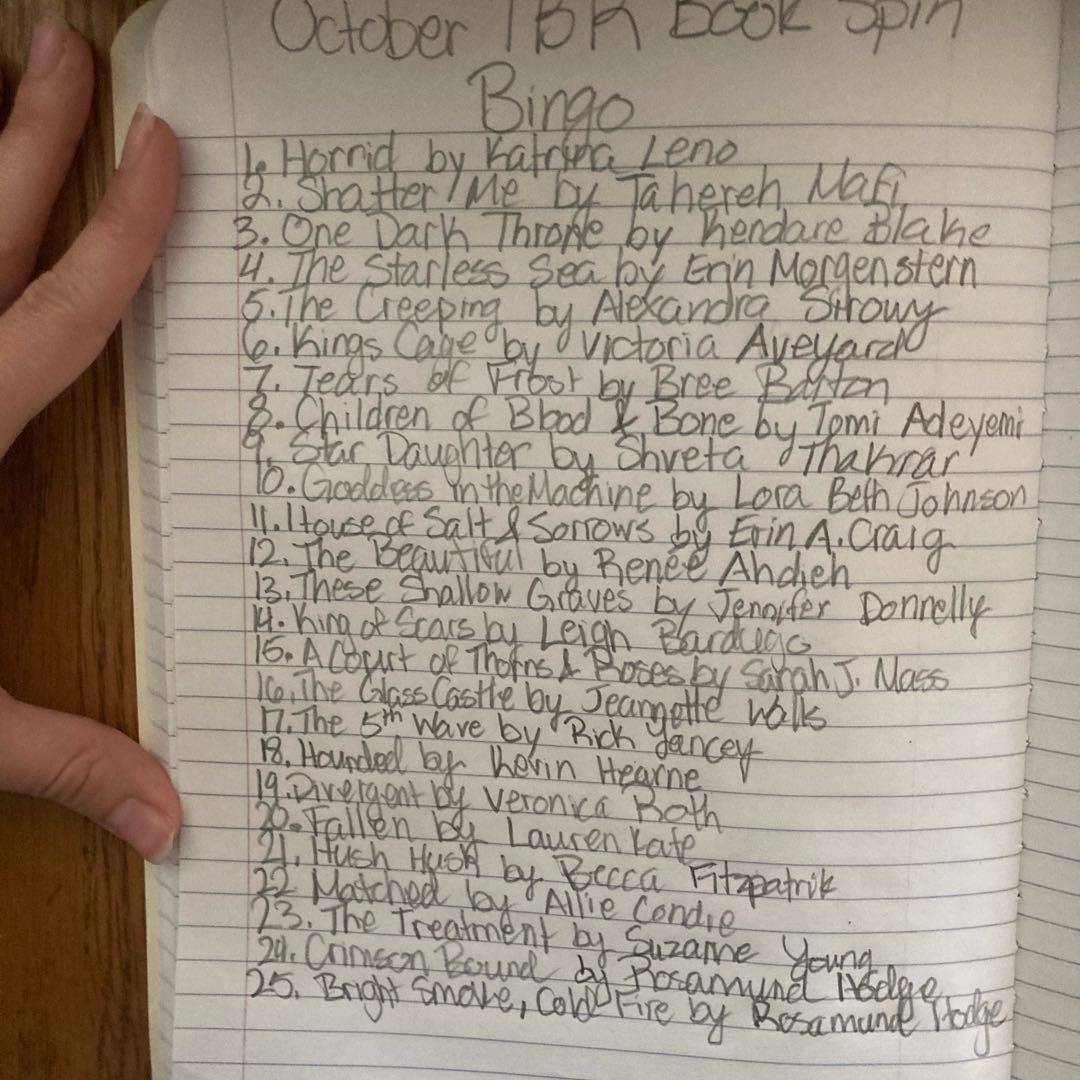 October TBR Book Spin
Bingo
1. Horrid by Katrina Leno
2. Shatter Me by Tahereh Mafi
3. One Dark Throne by Kendare Blake
4. The Starless Sea by Erin Morgenstern
5. The Creeping by Alexandra Sirowy
6. Kings Cage by Victoria Aveyard
7. Tears of Frost by Bree Barton
8. Children of Blood & Bone by Tomi Adeyemi
9. Star Daughter by Shveta Thakrar
10. Goddess in the Machine by Lora Beth Johnson
11. House of Salt & Sorrows by Erin A. Craig
12. The Beautiful by Renée Ahdieh
13. These Shallow Graves by Jennifer Donnelly
14. King of Scars by Leigh Bardugo
15. A Court of Thorns & Roses by Sarah J. Mass
16. The Glass Castle by Jeannette Walls
17. The 5th Wave by Rick Yancey
18. Hounded by Kevin Hearne
19. Divergent by Veronica Roth
20. Fallen by Lauren Kate
21. Hush Hush by Becca Fitzpatrik
22 Matched by Allie Condie
23. The Treatment by Suzanne Young
24. Crimson Bound by Rosamund Hodge
25. Bright Smoke, Cold Fire by Rosamund Hodge